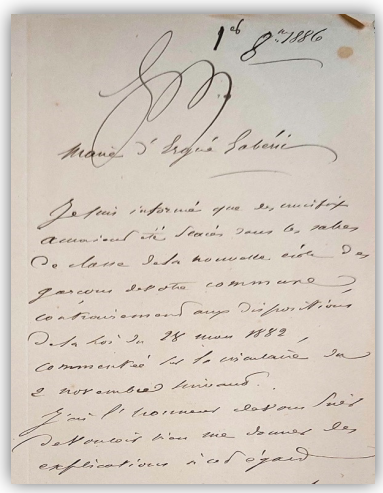 1er 8bre 1886
M
Maire d'Ergué Gabéric
Je suis informé que des crucifix
auraient été placés dans les salles
de classe de la nouvelle école des
garçons de votre commune,
contrairement aux dispositions
de la loi du 28 mars 1882,
commentée par la circulaire du
2 novembre suivant.
J'ai l'honneur de vous prier
de vouloir bien me donner des
explications à cet égard